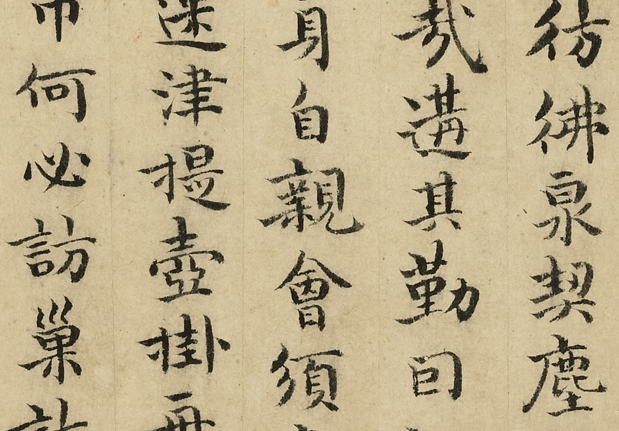 彷彿泉契塵
哉遘其勤回
身自親會須
迷津提壺掛
何必訪巢